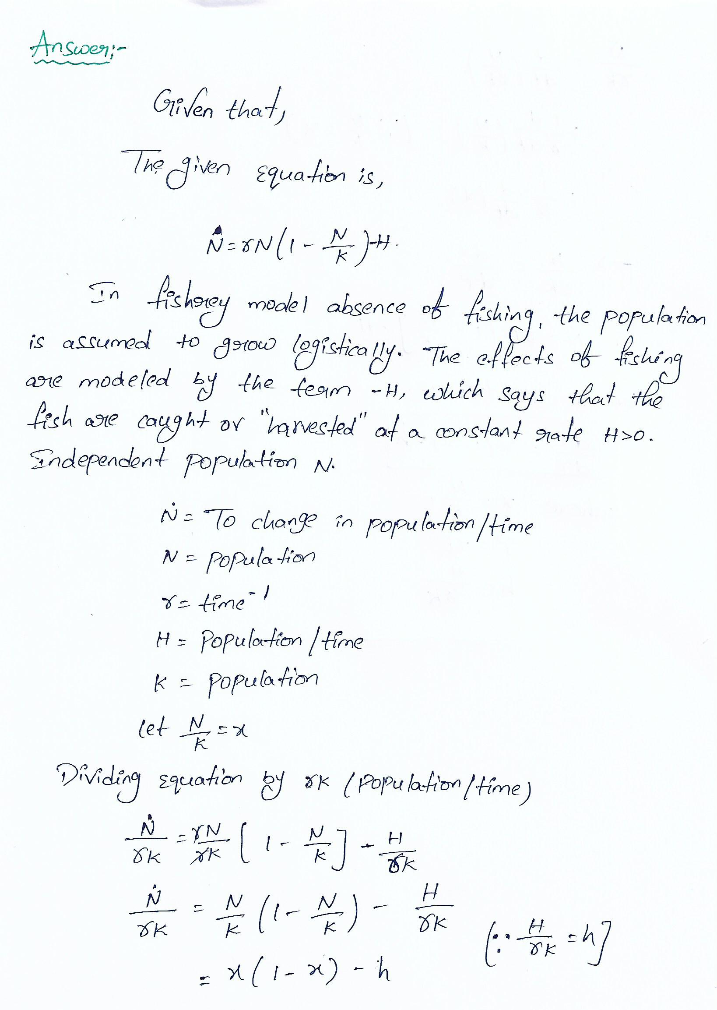 Answer:-
Given that,
The given equation is,
Ṅ = rN(1 - N/K) - H.
In fishery model absence of fishing, the population
is assumed to grow logistically. The effects of fishing
are modeled by the team -H, which says that the
fish are caught or "harvested" at a constant rate H>0.
Independent population N.
Ṅ = To change in population/time
N = population
r = time⁻¹
H = Population/time
K = population
let N/K = x
Dividing equation by rK (Population/time)
Ṅ/rK = rN/rK [1 - N/K] - H/rK
Ṅ/rK = N/K (1 - N/K) - H/rK
= x(1-x) - h [∵ H/rK = h]